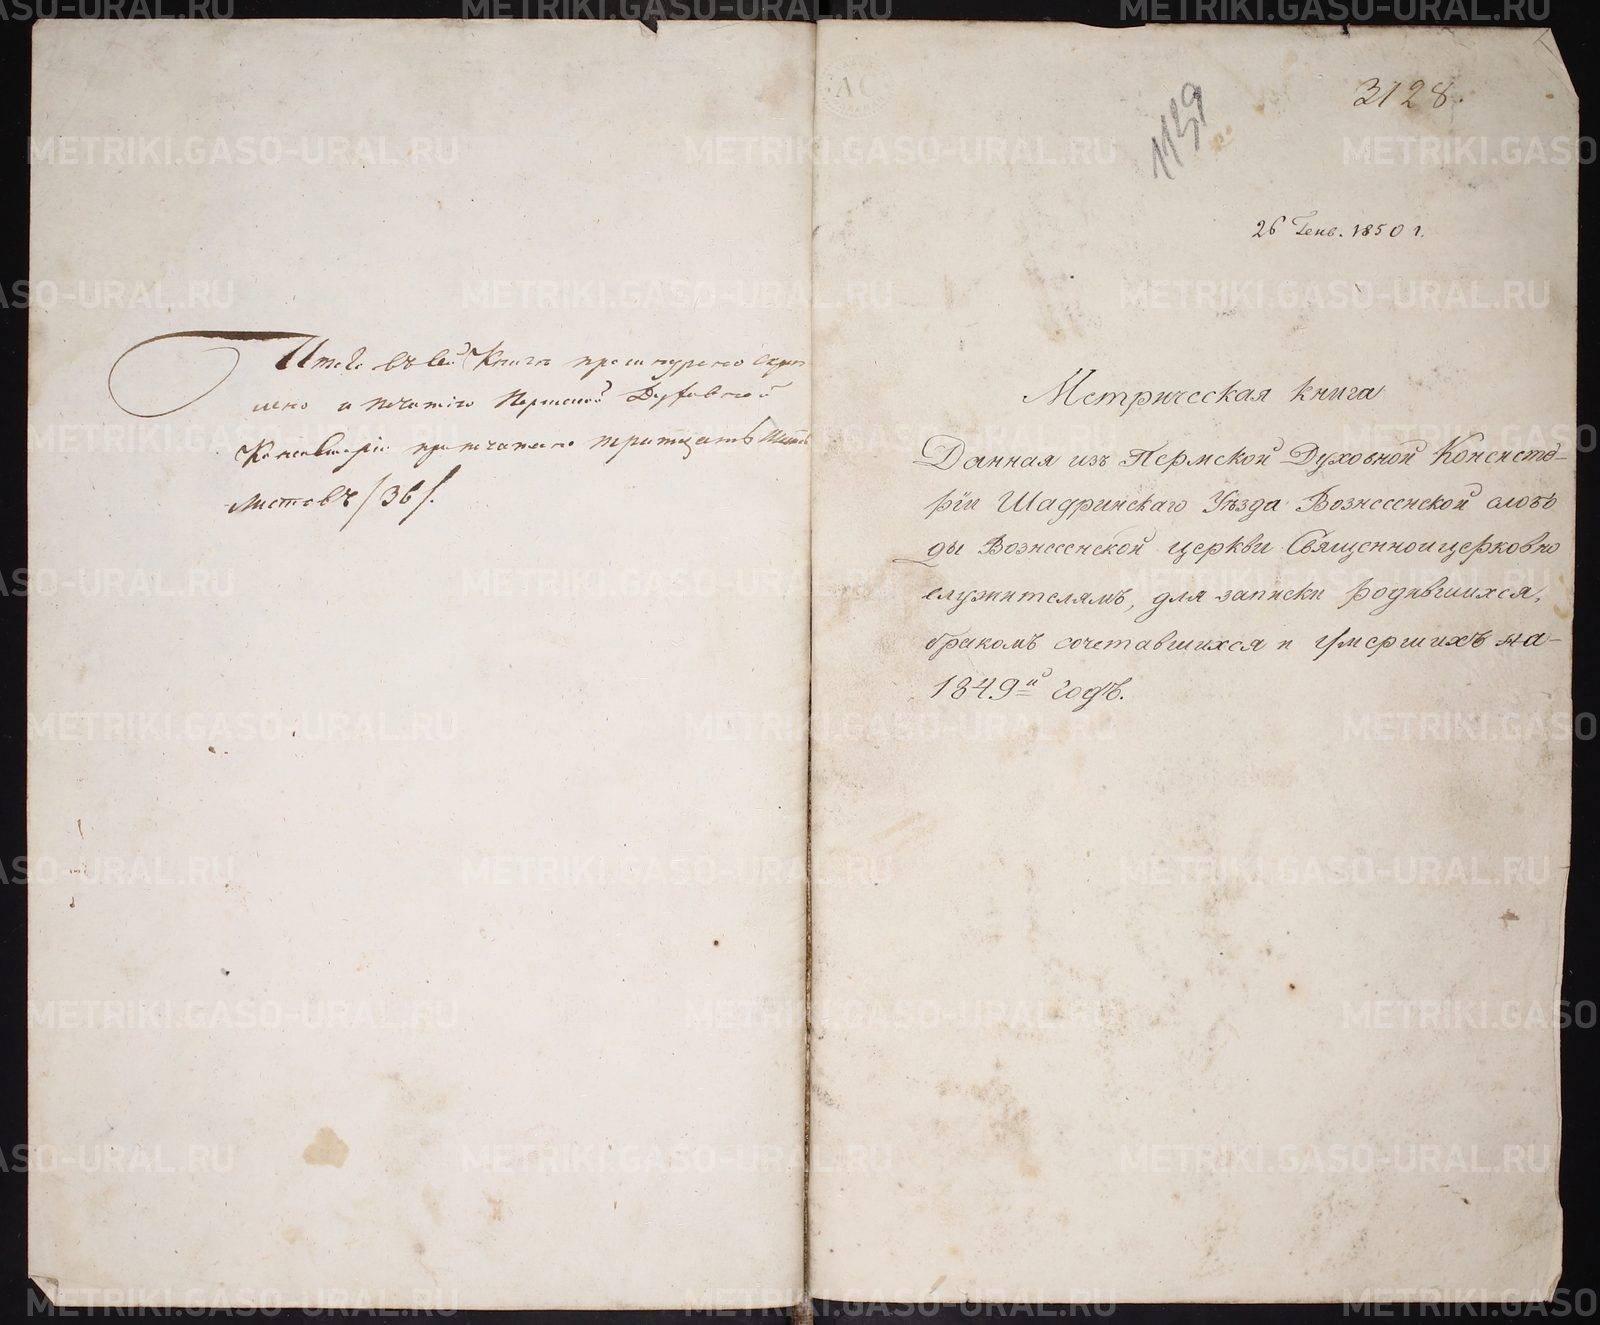 Итого въ сей Книгѣ прошнуровано скреп
лено и печатію Пермской Духовной
Консисторіи припечатано тритцать шесть
листовъ /36/.
3128.
1159
26 Генв. 1850 г.
Метрическая книга
Данная изъ Пермской Духовной Консисто-
ріи Шадринскаго Уѣзда Вознесенской слобо
ды Вознесенской церкви Священноицерковно
служителямъ, для записки родившихся,
бракомъ сочетавшихся и умершихъ на-
1849й годъ.